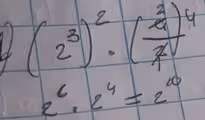 (2³)² · (4̶ ²/2̶ ₁)⁴
2⁶ · 2⁴ = 2¹⁰